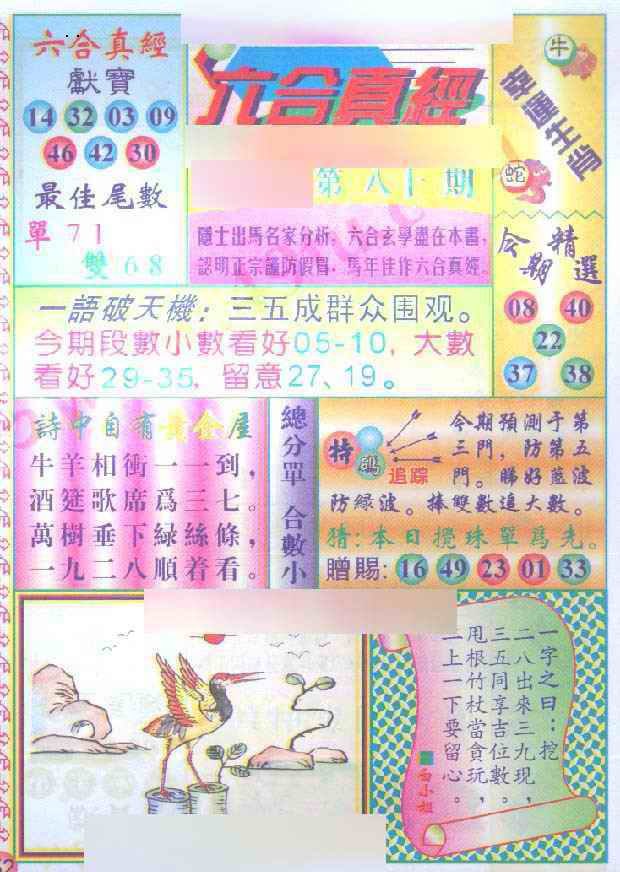 六合真經
獻寶
14 32 03 09
46 42 30
最佳尾數
單 71
雙 68
六合真經
第八十期
隱士出馬名家分析，六合玄學盡在本書，
認明正宗謹防假冒，馬年佳作六合真經。
牛
幸運生肖
蛇
今期精選
08 40
22
37 38
一語破天機：三五成群众围观。
今期段數小數看好05-10，大數
看好29-35，留意27、19。
詩中自有黃金屋
牛羊相衝一一到，
酒筵歌席爲三七。
萬樹垂下緑絲條，
一九二八順着看。
總分單 合數小
特碼
追踪
今期預測于第
三門，防第五
門。睇好藍波
防緑波。捧雙數追大數。
猜：本日攪珠單爲先。
贈賜：16 49 23 01 33
一字之曰：挖
二八出來三九現，
三五同享吉位數，
甩根竹杖當貪玩。
二上一下要留心。
■白小姐